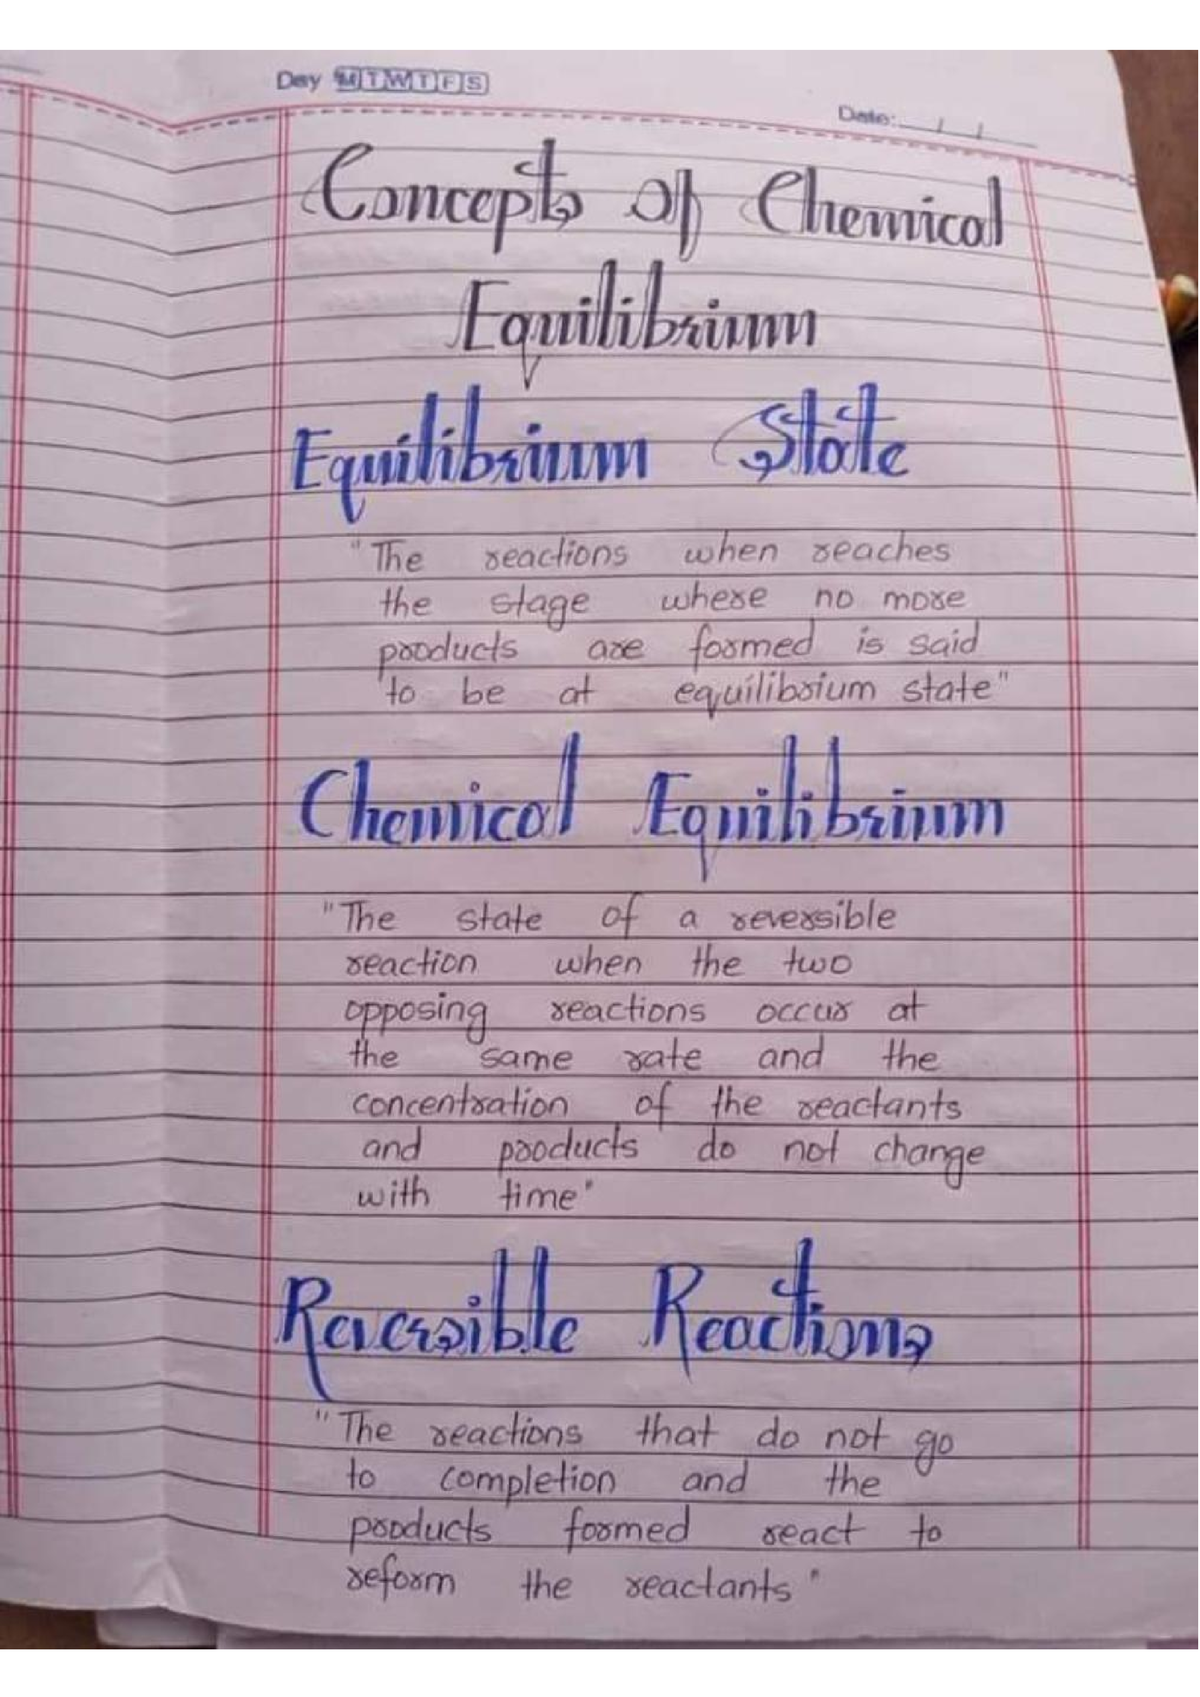 Day M T W T F S
Date: / /
Concepts Of Chemical
Equilibrium
Equilibrium State
"The reactions when reaches
the stage where no more
products are formed is said
to be at equilibrium state"
Chemical Equilibrium
"The state of a reversible
reaction when the two
opposing reactions occur at
the same rate and the
concentration of the reactants
and products do not change
with time"
Reversible Reactions
"The reactions that do not go
to completion and the
products formed react to
reform the reactants"